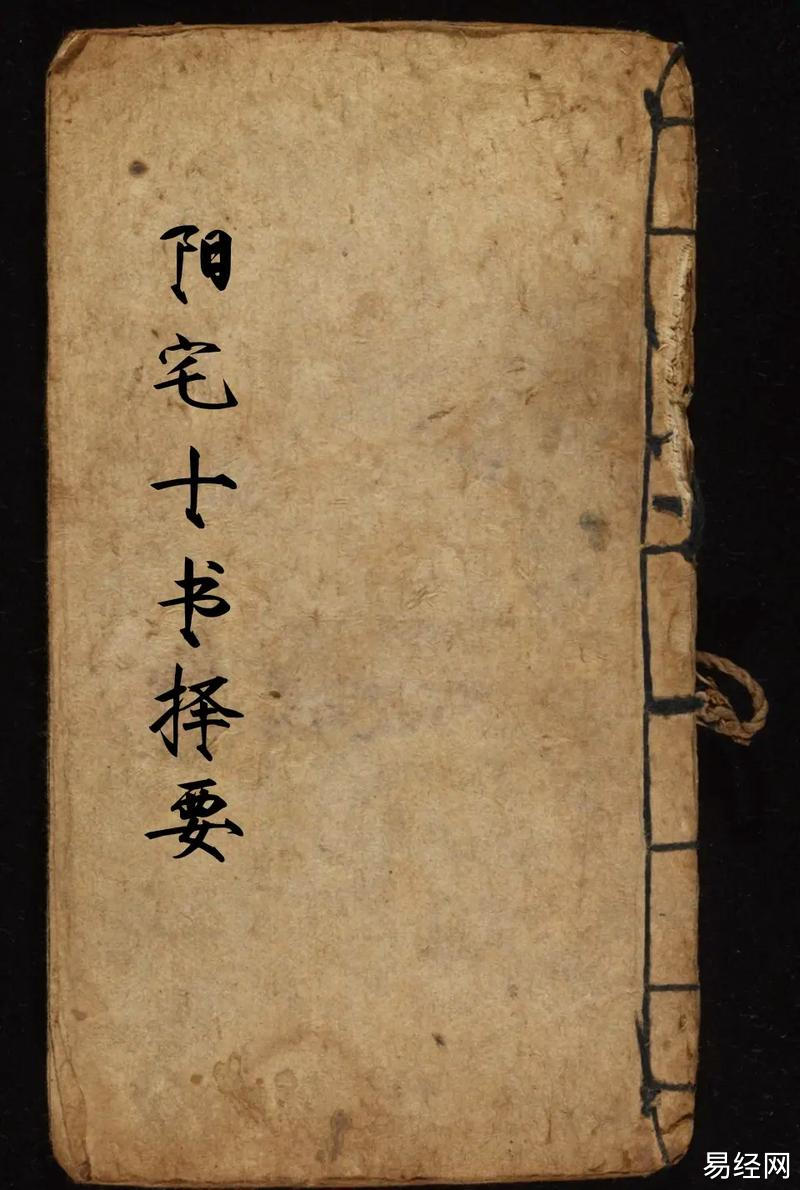 阳宅十书择要
易经网